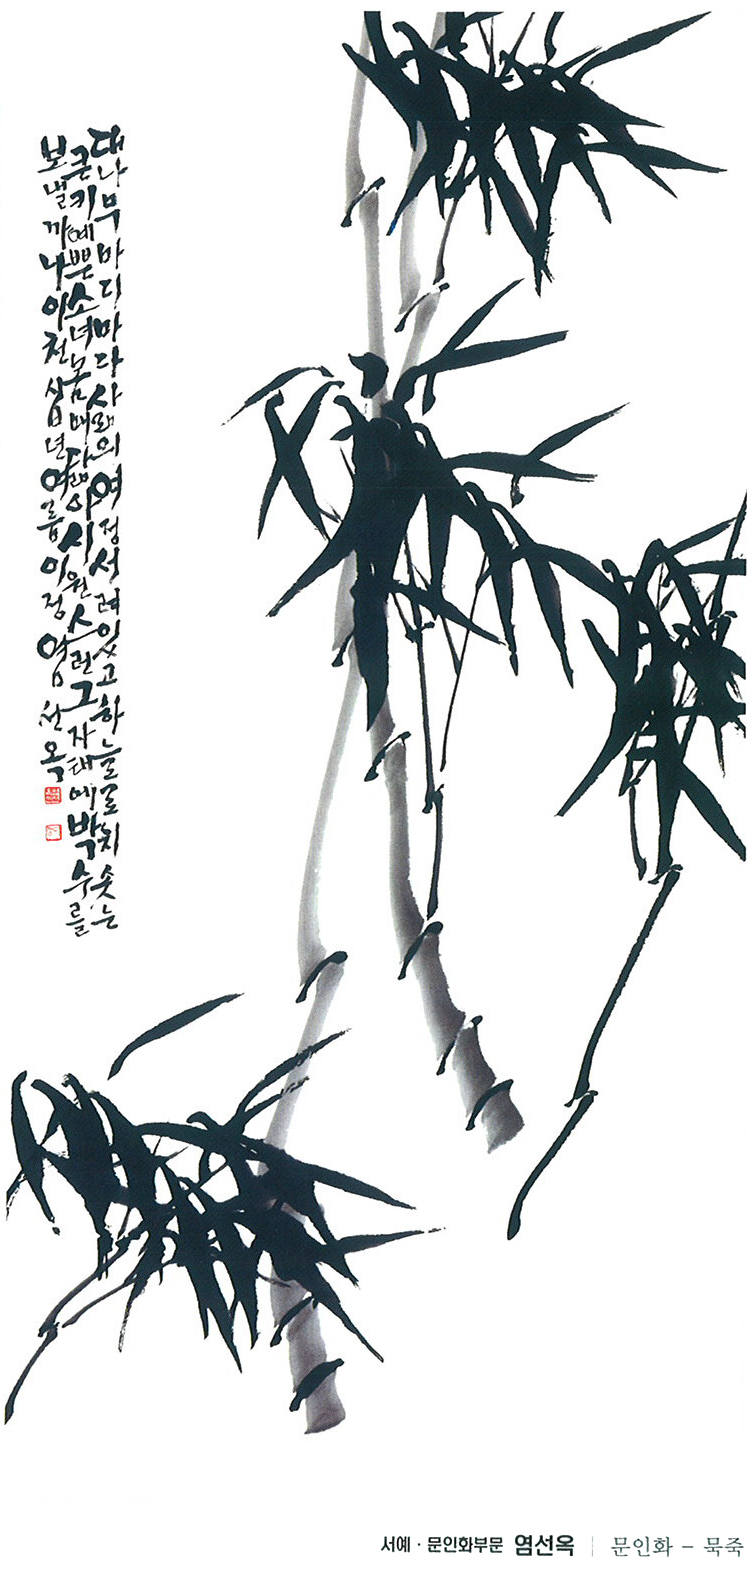 대나무마디마다사랑의여정서려있고하늘로치솟는
큰키예쁜소녀몸매닮아시원스런그자태에박수를
보낼까나이천십년여름이정염선옥
서예·문인화부문 염선옥 | 문인화 - 묵죽